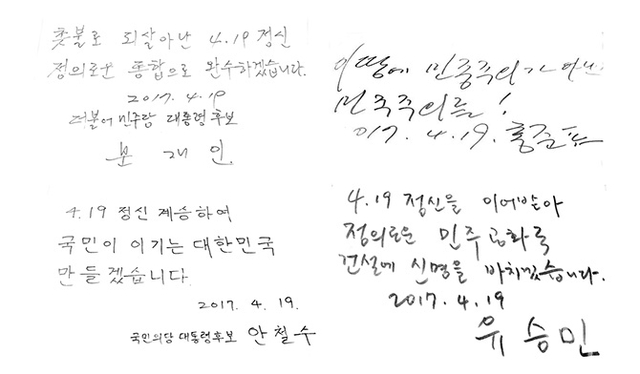 촛불로 되살아난 4.19 정신
정의로운 통합으로 완수하겠습니다.
2017. 4.19
더불어민주당 대통령후보
문 재 인
이 땅에 민주주의가
민주주의를!
017. 4.19. 홍준표
4.19 정신 계승하여
국민이 이기는 대한민국
만들겠습니다.
2017. 4. 19.
국민의당 대통령후보 안철수
4.19 정신을 이어받아
정의로운 민주공화국
건설에 신명을 바치겠습니다.
2017. 4. 19
유 승 민